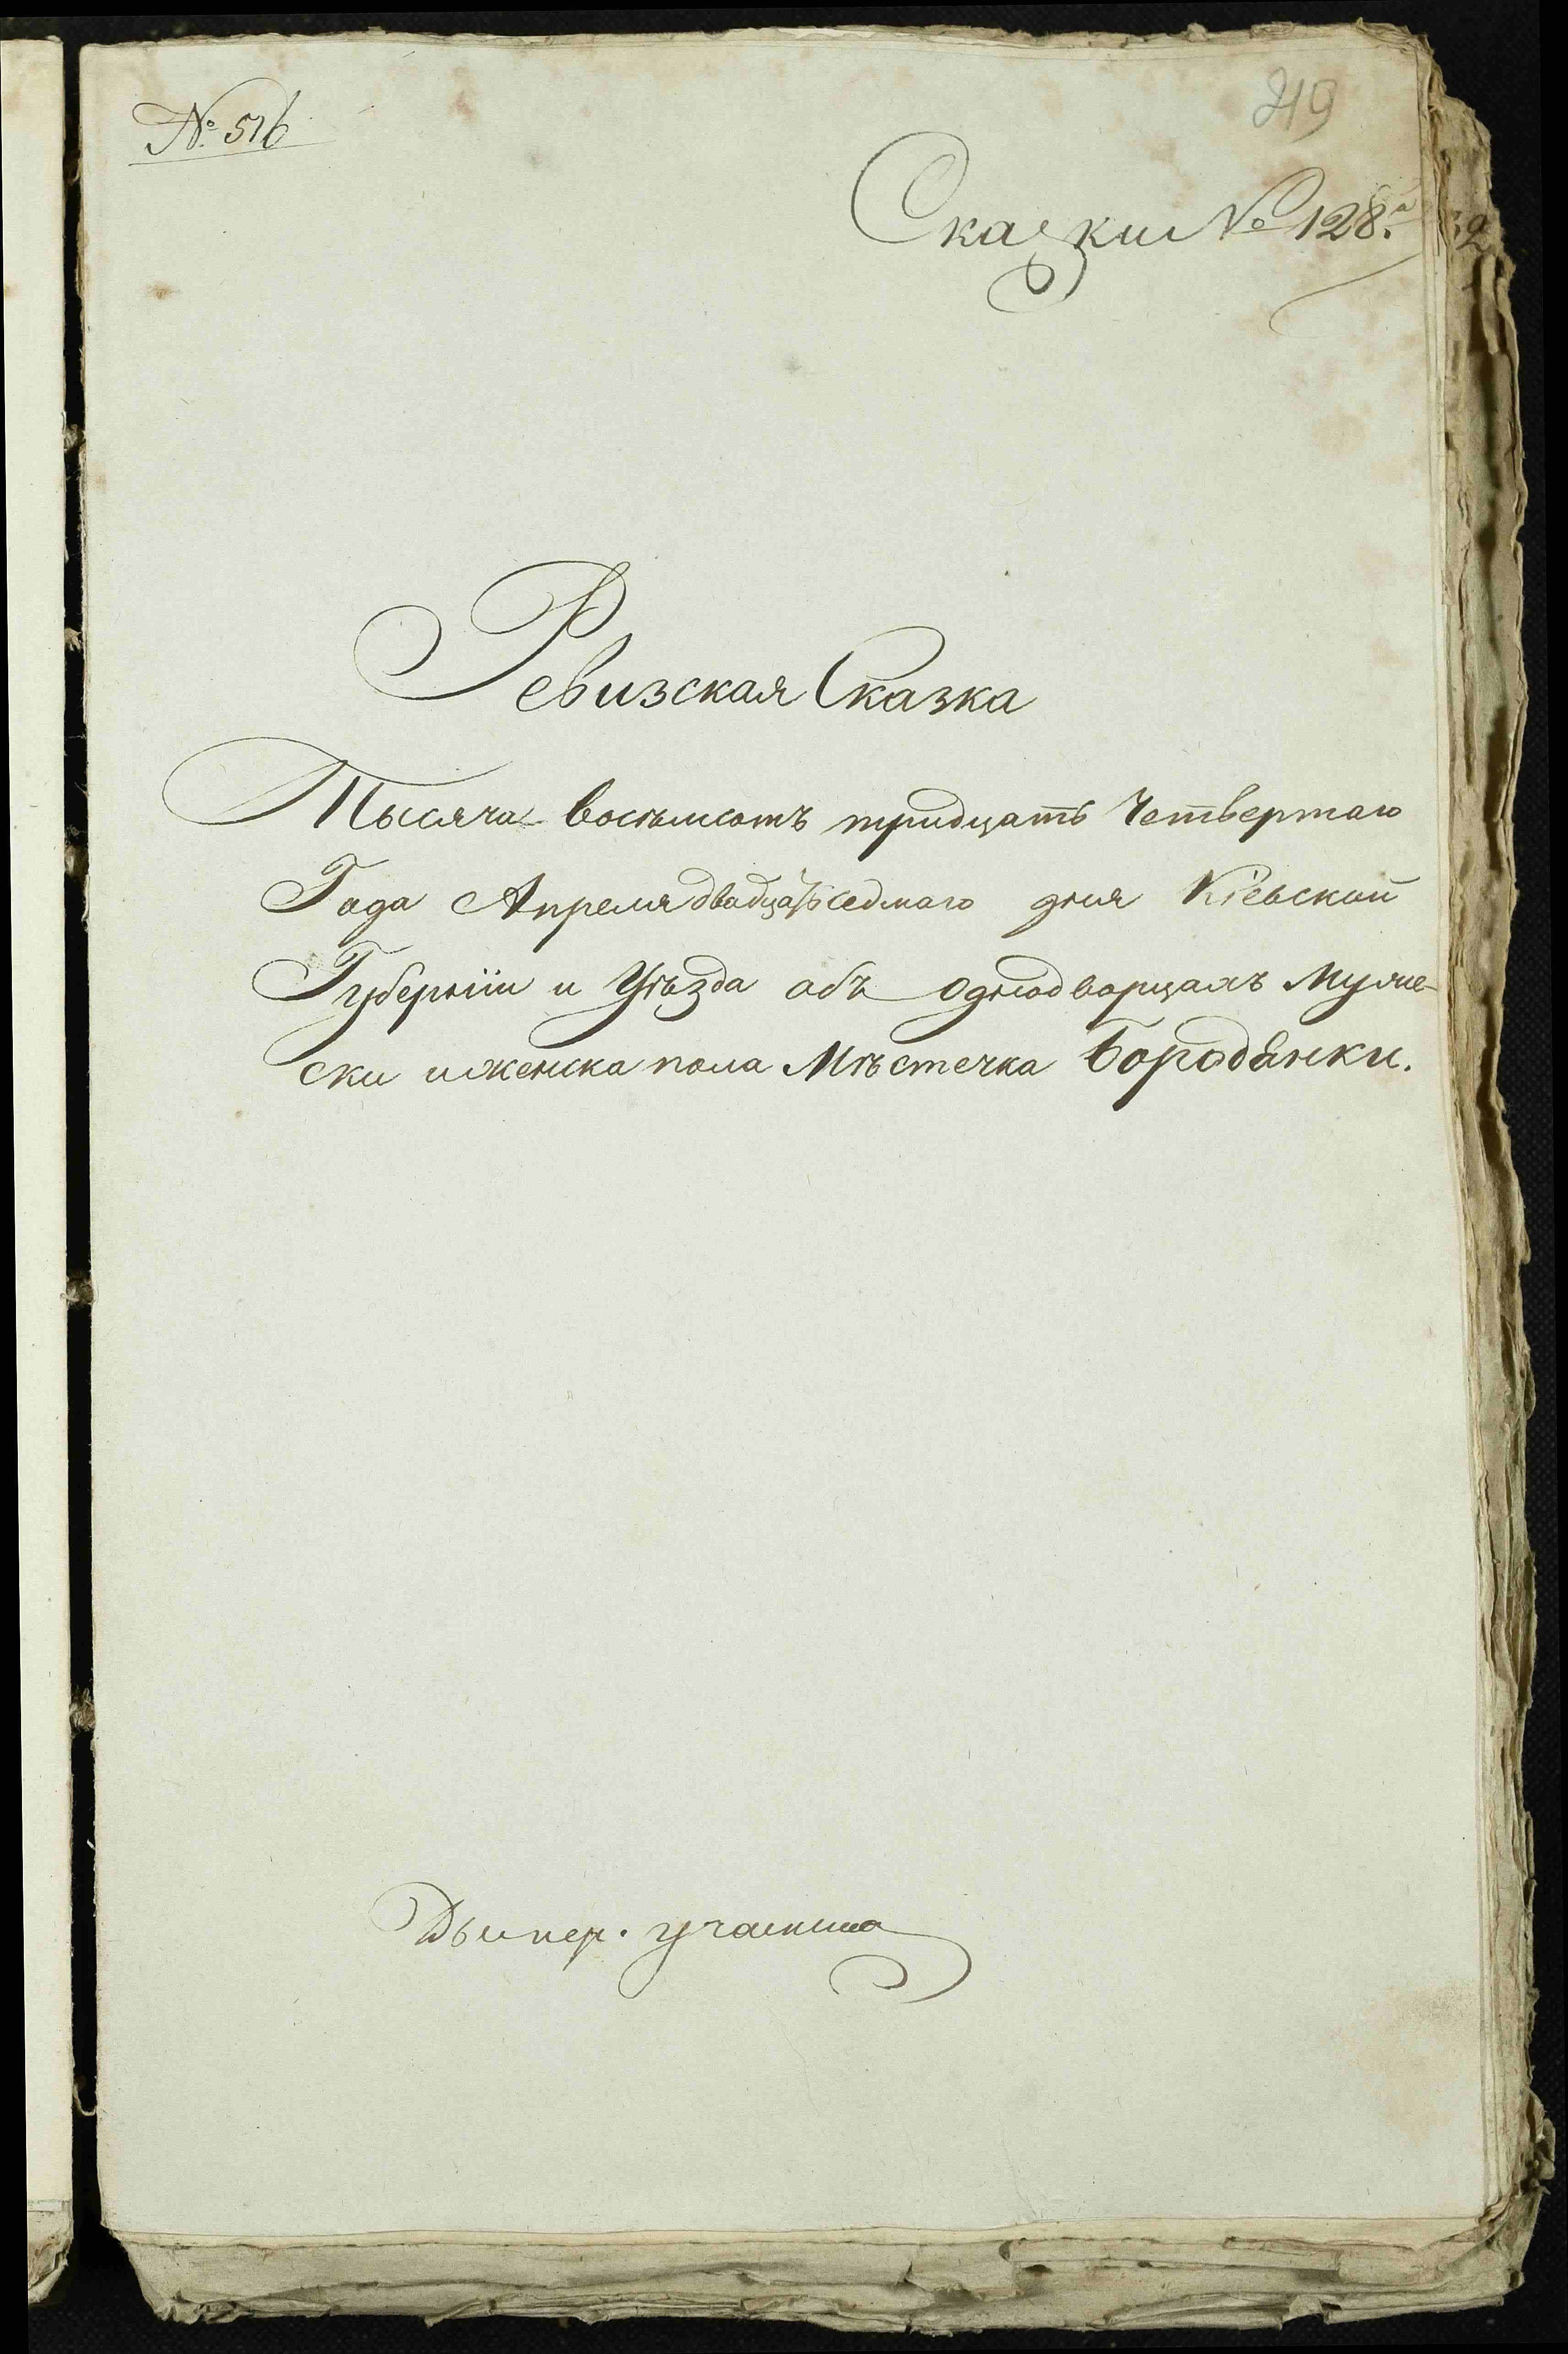 № 516
219
Сказки № 128.а
Ревизская Сказка
Тысяча восьмсотъ тридцать Четвертаго
Года Апреля двадцать седмаго дня Кіевской
Губерніи и Уѣзда объ однодворцахъ Муже-
ски и женска пола Мѣстечка Бородянки.
Дымер. участка